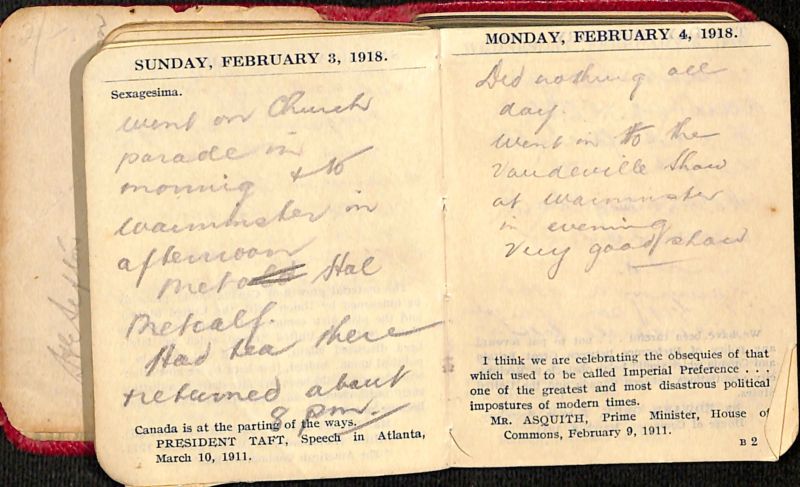 SUNDAY, FEBRUARY 3, 1918.
Sexagesima.
went on Church
parade in
morning & to
Warminster in
afternoon
Met Hal
Metcalf.
Had tea there
returned about
8 pm.
Canada is at the parting of the ways.
PRESIDENT TAFT, Speech in Atlanta,
March 10, 1911.
MONDAY, FEBRUARY 4, 1918.
Did nothing all
day.
Went in to the
Vaudeville Show
at Warminster
in evening
Very good show
I think we are celebrating the obsequies of that
which used to be called Imperial Preference . . .
one of the greatest and most disastrous political
impostures of modern times.
MR. ASQUITH, Prime Minister, House of
Commons, February 9, 1911.
B 2